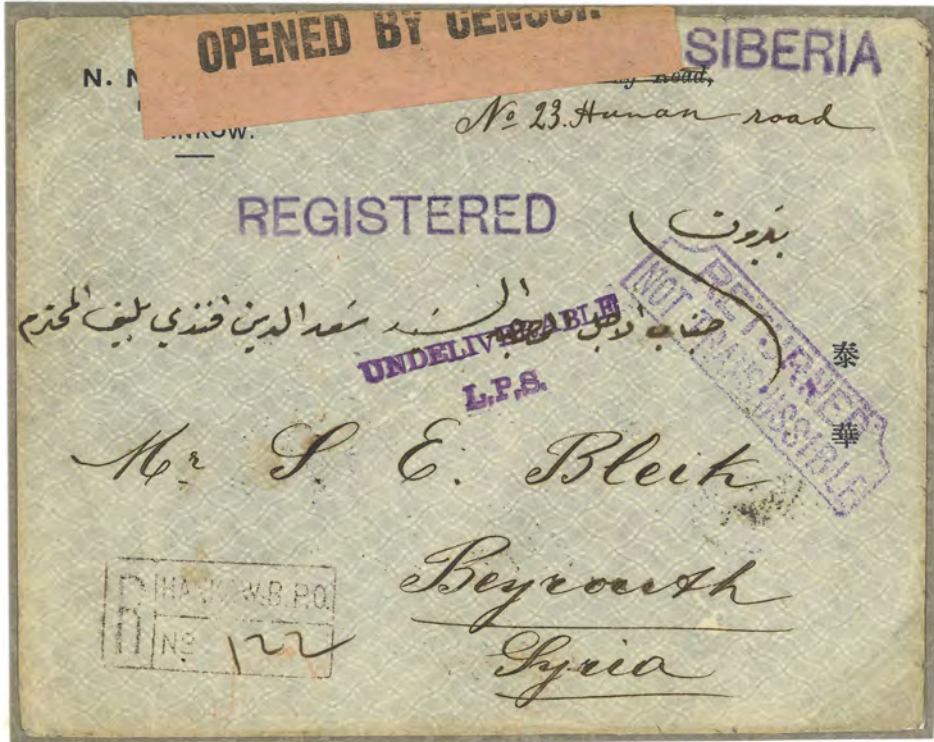 OPENED BY CENSOR
SIBERIA
N. N
Road,
NKOW.
№ 23. Hunan road
REGISTERED
بيروت
جناب الاجل
السيد سعد الدين افندي بليق المحترم
UNDELIVERABLE
L.P.S.
RETURNED
NOT TRANSMISSIBLE
泰華
Mr S. E. Bleik
Beyrouth
Syria
R HANKOW.B.P.O.
№ 122